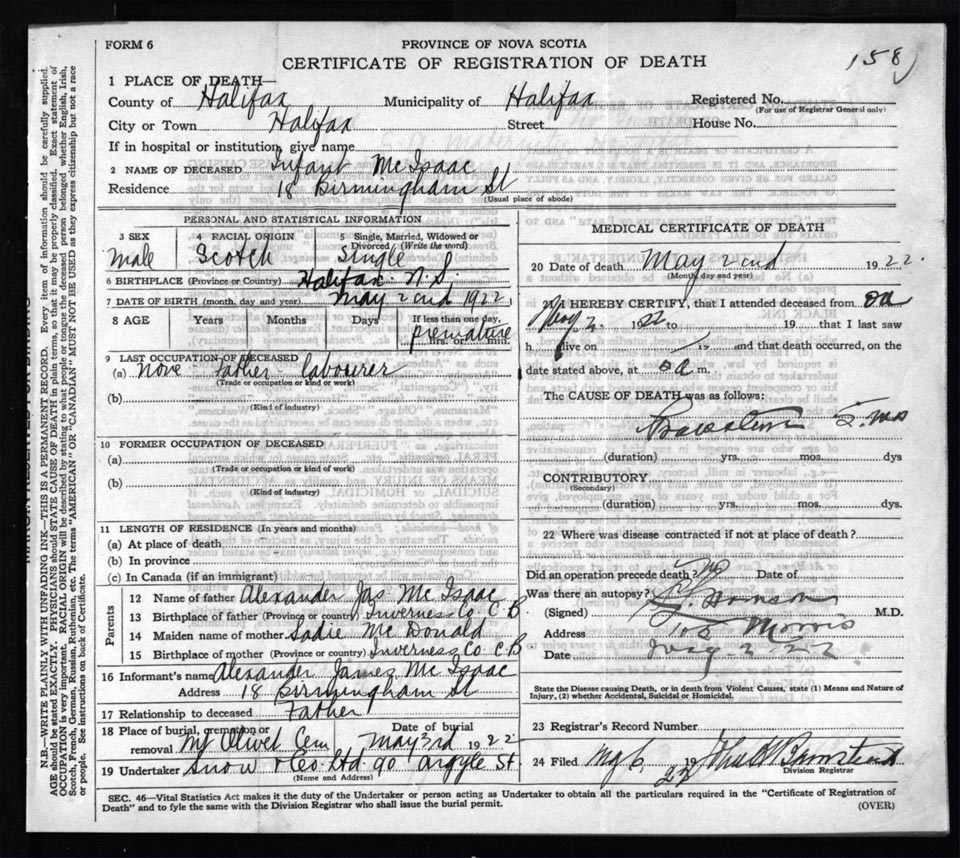 FORM 6
PROVINCE OF NOVA SCOTIA
CERTIFICATE OF REGISTRATION OF DEATH
158
1 PLACE OF DEATH—
County of Halifax Municipality of Halifax Registered No.
(For use of Registrar General only)
City or Town Halifax Street House No.
If in hospital or institution, give name
2 NAME OF DECEASED Infant McIsaac
Residence 18 Birmingham St
(Usual place of abode)
PERSONAL AND STATISTICAL INFORMATION
3 SEX 4 RACIAL ORIGIN 5 Single, Married, Widowed or Divorced (Write the word)
Male Scotch Single
6 BIRTHPLACE (Province or Country) Halifax N.S.
7 DATE OF BIRTH (month, day and year) May 2nd 1922
8 AGE Years Months Days If less than one day,
premature
hrs. or min.
9 LAST OCCUPATION OF DECEASED
(a) None Father labourer
(Trade or occupation or kind or work)
(b)
(Kind of industry)
10 FORMER OCCUPATION OF DECEASED
(a)
(Trade or occupation or kind or work)
(b)
(Kind of industry)
11 LENGTH OF RESIDENCE (In years and months)
(a) At place of death
(b) In province
(c) In Canada (if an immigrant)
Parents
12 Name of father Alexander Jas McIsaac
13 Birthplace of father (Province or country) Inverness Co. C.B
14 Maiden name of mother Sadie McDonald
15 Birthplace of mother (Province or country) Inverness Co C.B
16 Informant's name Alexander James McIsaac
Address 18 Birmingham St
17 Relationship to deceased Father
18 Place of burial, cremation or removal Mt Olivet Cem Date of burial May 3rd 1922
19 Undertaker Snow & Co. Ltd 90 Argyle St.
(Name and Address)
MEDICAL CERTIFICATE OF DEATH
20 Date of death May 2nd 1922
(Month, day and year)
21 I HEREBY CERTIFY, that I attended deceased from
1922 to 19 that I last saw
h alive on 19 and that death occurred, on the
date stated above, at m.
The CAUSE OF DEATH was as follows:
(duration) yrs. mos. dys
CONTRIBUTORY
(Secondary)
(duration) yrs. mos. dys.
22 Where was disease contracted if not at place of death?
Did an operation precede death? Date of
Was there an autopsy?
(Signed) M.D.
Address Morris
Date
State the Disease causing Death, or in death from Violent Causes, state (1) Means and Nature of
Injury, (2) whether Accidental, Suicidal or Homicidal.
23 Registrar's Record Number
24 Filed 6, 19 22
Division Registrar
SEC. 46—Vital Statistics Act makes it the duty of the Undertaker or person acting as Undertaker to obtain all the particulars required in the "Certificate of Registration of
Death" and to fyle the same with the Division Registrar who shall issue the burial permit.
(OVER)
N.B.—WRITE PLAINLY WITH UNFADING INK—THIS IS A PERMANENT RECORD. Every item of information should be carefully supplied.
AGE should be stated EXACTLY. PHYSICIANS should STATE CAUSE OF DEATH in plain terms, so that it may be properly classified. Exact statement of
OCCUPATION is very important. RACIAL ORIGIN will be described by stating to what people or tongue the deceased person belonged, whether English, Irish,
Scotch, French, German, Russian, Ruthenian, etc. The terms "AMERICAN" or "CANADIAN" MUST NOT BE USED as they express citizenship but not a race
or people. See instructions on back of Certificate.